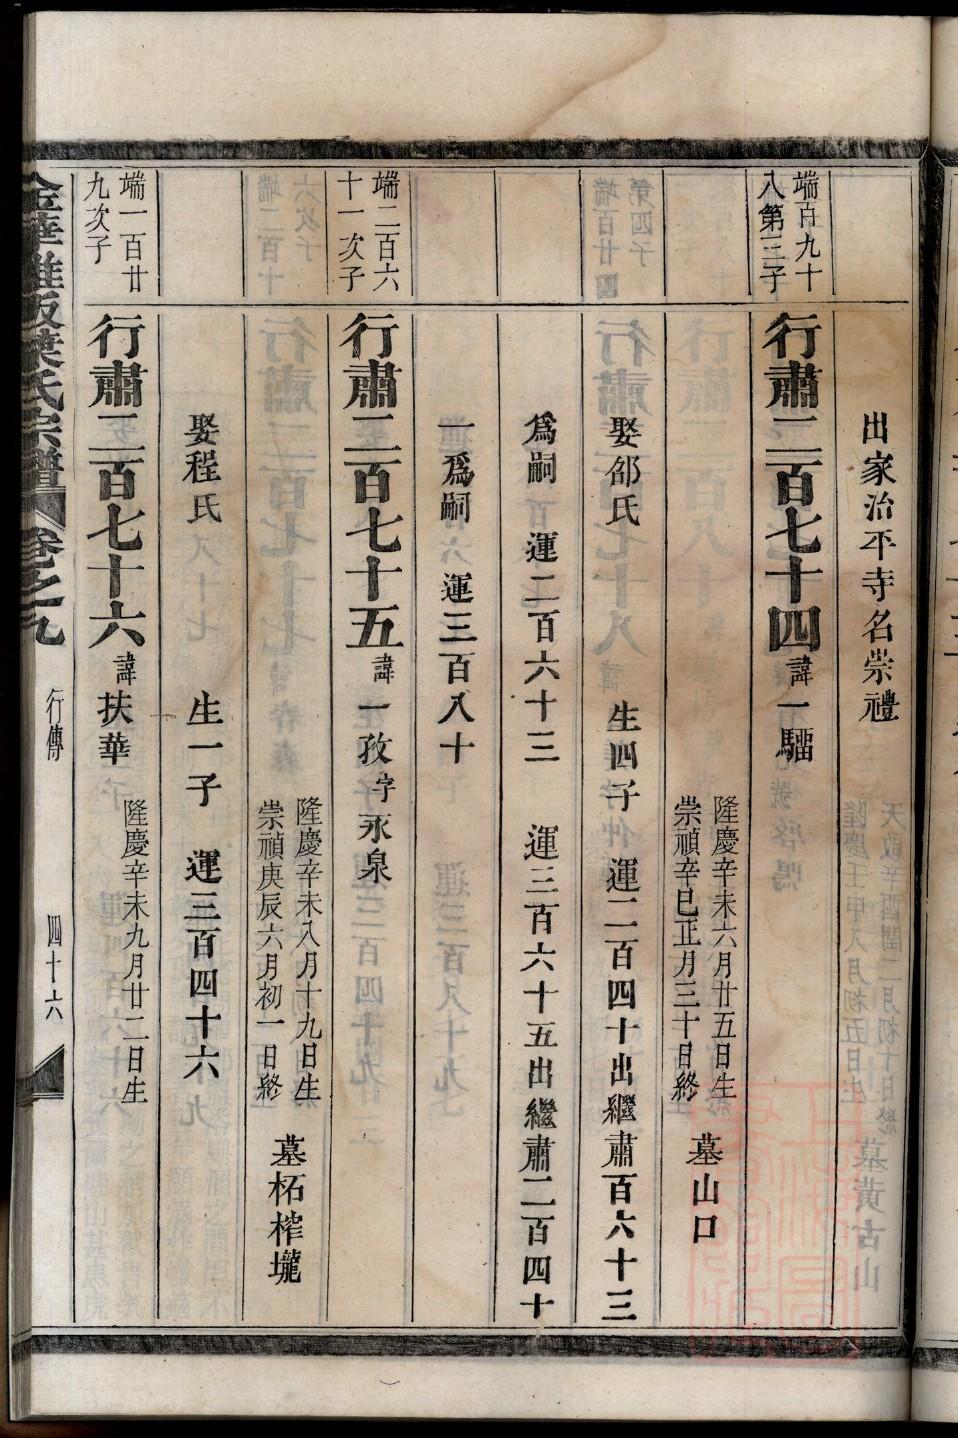 出家治平寺名崇禮
端百九十
八第三子
行肅二百七十四 諱一騮
隆慶辛未六月廿五日生
崇禎辛巳正月三十日終
墓山口
娶邵氏 生四子 運二百四十出繼肅百六十三
爲嗣 運二百六十三 運三百六十五出繼肅二百四十
一爲嗣 運三百八十
端二百六
十一次子
行肅二百七十五 諱一孜字永泉
隆慶辛未八月十九日生
崇禎庚辰六月初一日終
墓柘榨壠
娶程氏 生一子 運三百四十六
端一百廿
九次子
行肅二百七十六 諱扶華
隆慶辛未九月廿二日生
葉氏宗譜 卷之九 行傳 四十六